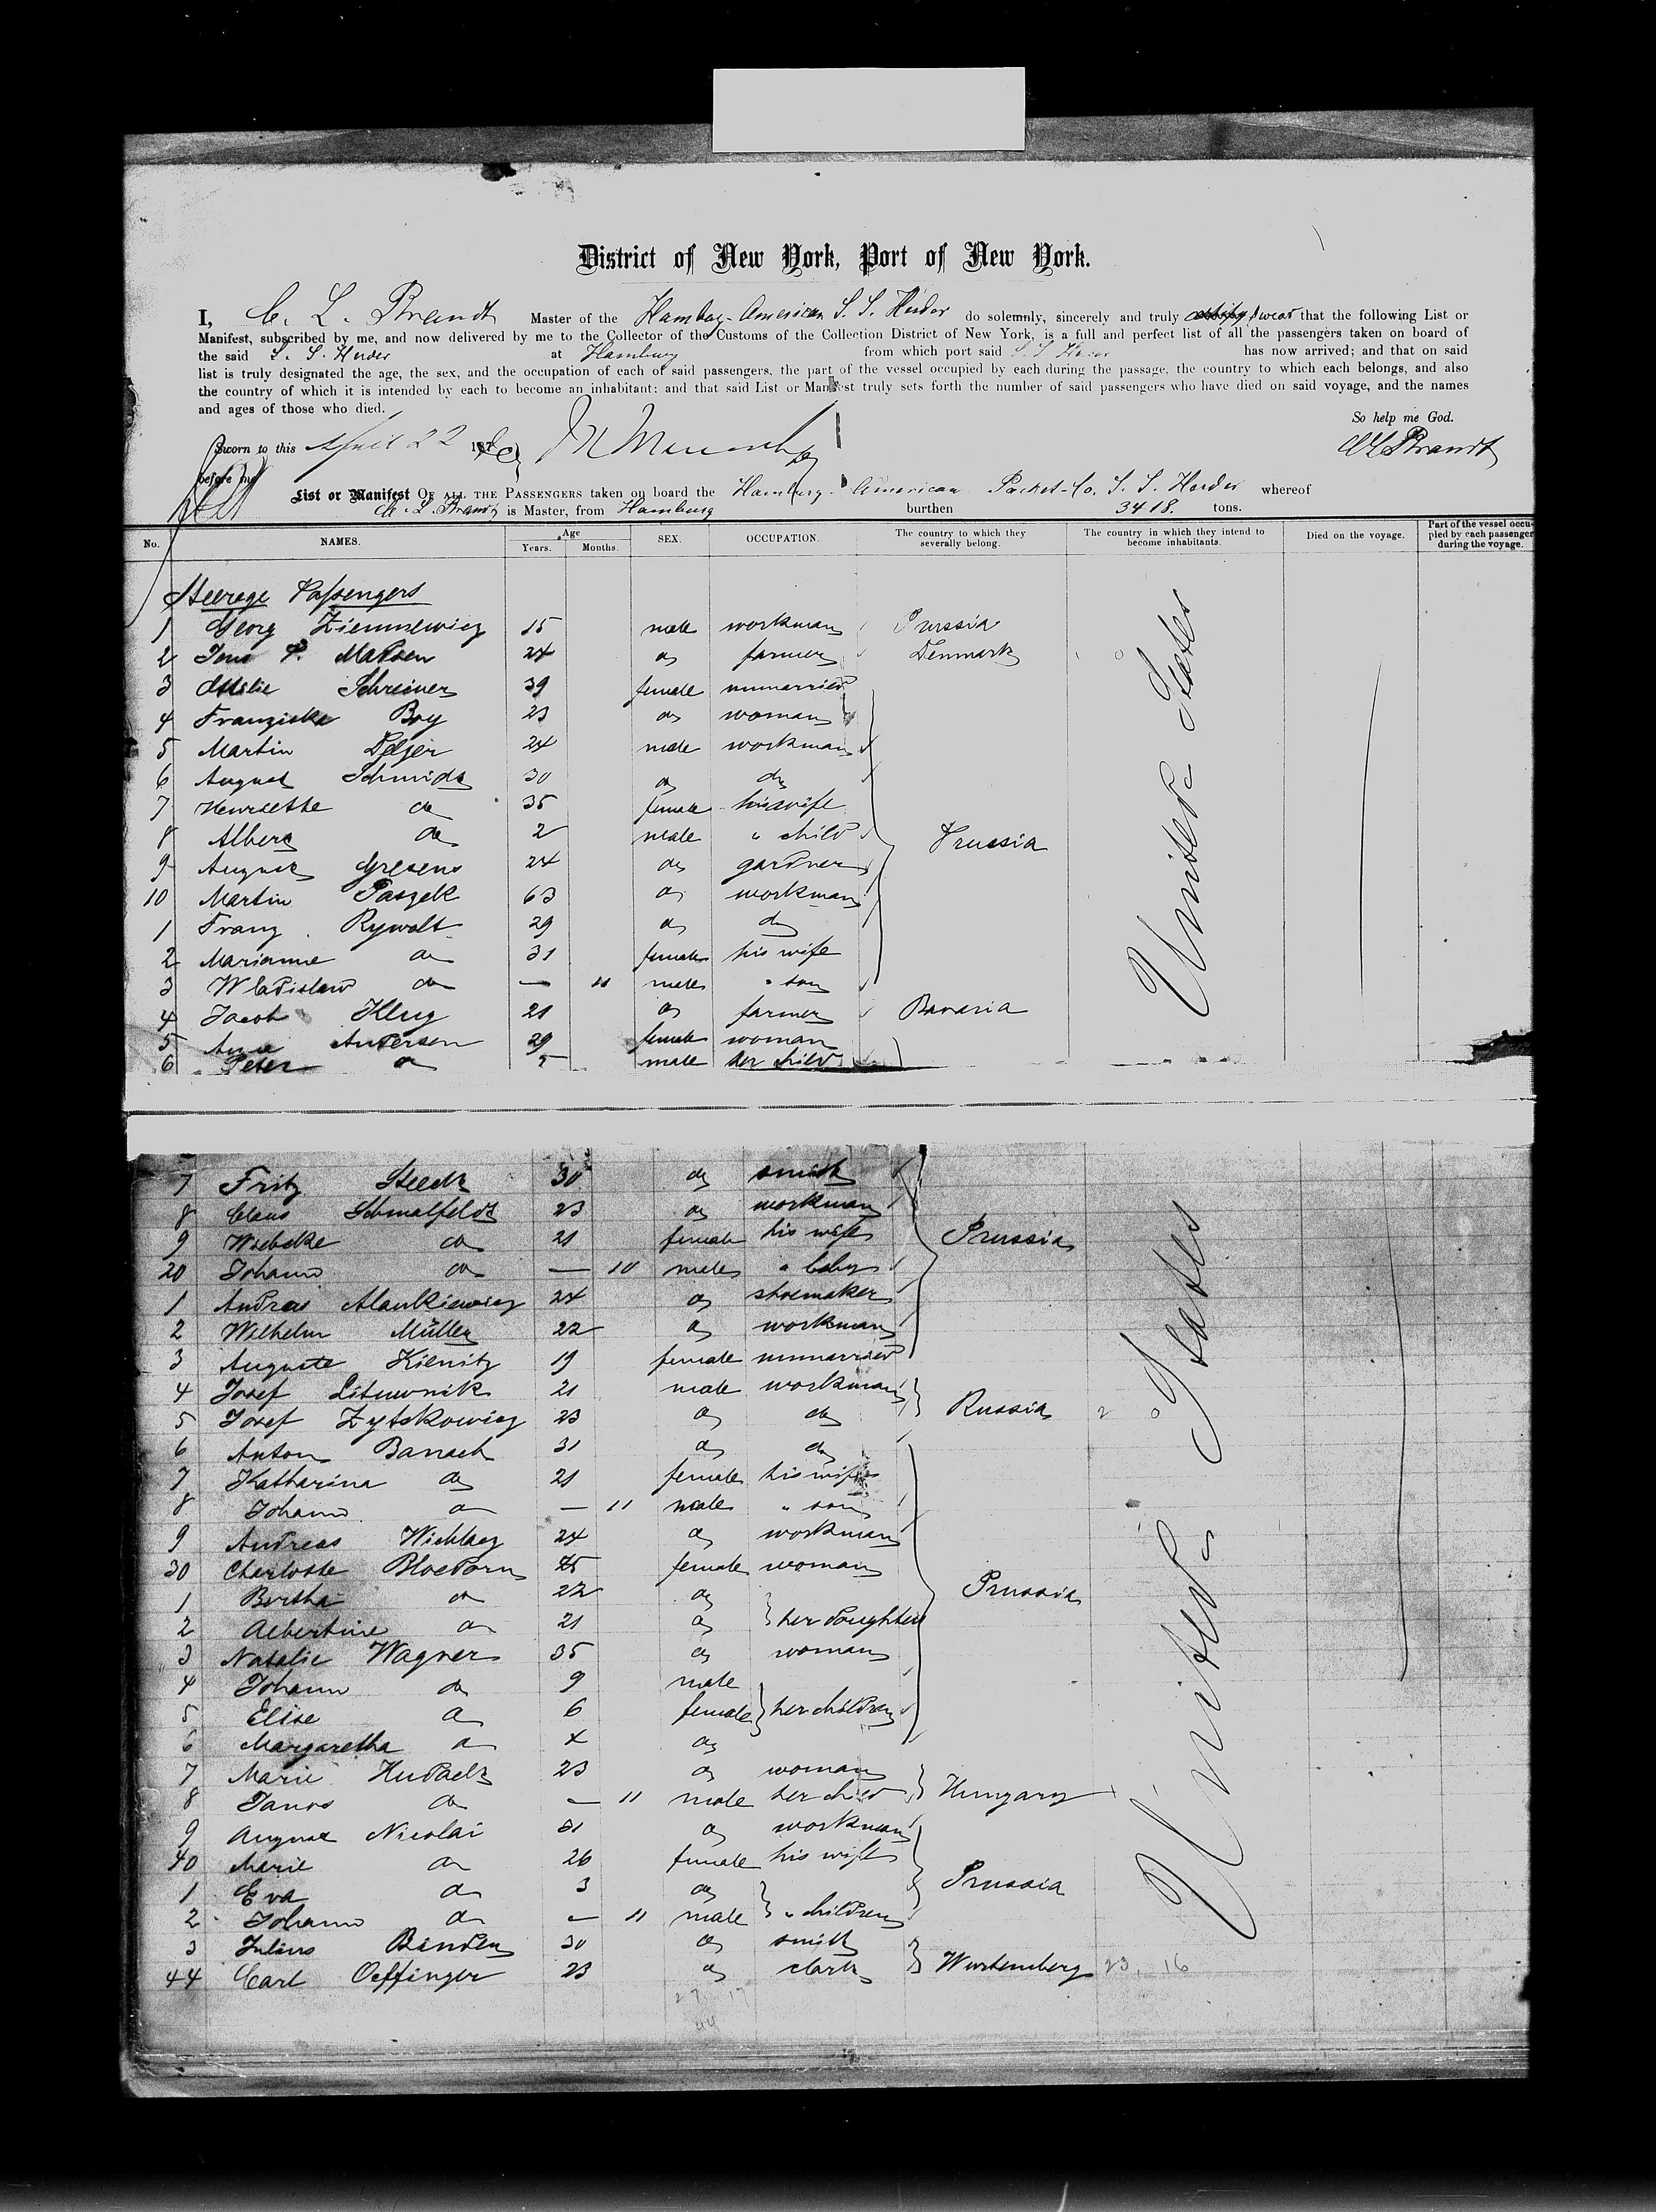 District of New York, Port of New York.
I, C. L. Brandt Master of the Hambg-American S. S. Herder do solemnly, sincerely and truly certify swear that the following List or
Manifest, subscribed by me, and now delivered by me to the Collector of the Customs of the Collection District of New York, is a full and perfect list of all the passengers taken on board of
the said S. S. Herder at Hamburg from which port said S. S. Herder has now arrived; and that on said
list is truly designated the age, the sex, and the occupation of each of said passengers, the part of the vessel occupied by each during the passage, the country to which each belongs, and also
the country of which it is intended by each to become an inhabitant; and that said List or Manifest truly sets forth the number of said passengers who have died on said voyage, and the names
and ages of those who died.
So help me God.
Sworn to this April 22 187
CL Brandt
before me
List or Manifest OF ALL THE PASSENGERS taken on board the Hamburg-American Packet-Co. S. S. Herder whereof
C. L. Brandt is Master, from Hamburg burthen 3418. tons.
No. NAMES. Age Years. Months. SEX. OCCUPATION. The country to which they severally belong. The country in which they intend to become inhabitants. Died on the voyage. Part of the vessel occupied by each passenger during the voyage.
Steerage Passengers
1 Georg 15 male workman Prussia
2 Jens P. Madsen 24 do farmer Denmark
3 Ottilie Schreiner 39 female unmarried
4 Franziska Boy 23 do woman
5 Martin 24 male workman
6 August Schmidt 30 do do
7 Henriette do 35 female his wife
8 Albert do 2 male " child Prussia
9 August Gresens 24 do gardner
10 Martin Paszek 63 do workman
1 Franz Rywolt 29 do do
2 Marianne do 31 female his wife
3 Wladislaw do — 11 male " son
4 Jacob Klug 21 do farmer Bavaria
5 Anna Andersen 29 female woman
6 Peter do male her child
7 Fritz Steck 30 do smith
8 Claus Schmalfeldt 23 do workman
9 Wiebcke do 21 female his wife Prussia
20 Johann do — 10 male " baby
1 Andreas 24 do shoemaker
2 Wilhelm Müller 22 do workman
3 Auguste Kienitz 19 female unmarried
4 Josef Lituwnik 21 male workman
5 Josef Zytskowicz 23 do do Russia 2
6 Anton Banach 31 do do
7 Katharina do 21 female his wife
8 Johann do — 11 male " son
9 Andreas 24 do workman
30 Charlotte Bloedorn 45 female woman
1 Bertha do 22 do Prussia
2 Albertine do 21 do her daughters
3 Natalie Wagner 35 do woman
4 Johann do 9 male
5 Elise do 6 female her children
6 Margaretha do 4 do
7 Marie Hudack 23 do woman
8 Janos do — 11 male her child Hungary
9 August Nicolai 31 do workman
40 Marie do 26 female his wife
1 Eva do 3 do Prussia
2 Johann do — 11 male " children
3 Julius Binder 30 do smith
44 Carl Oeffinger 23 do clark Wurtemberg 23. 16
27 17
44
United States
United States